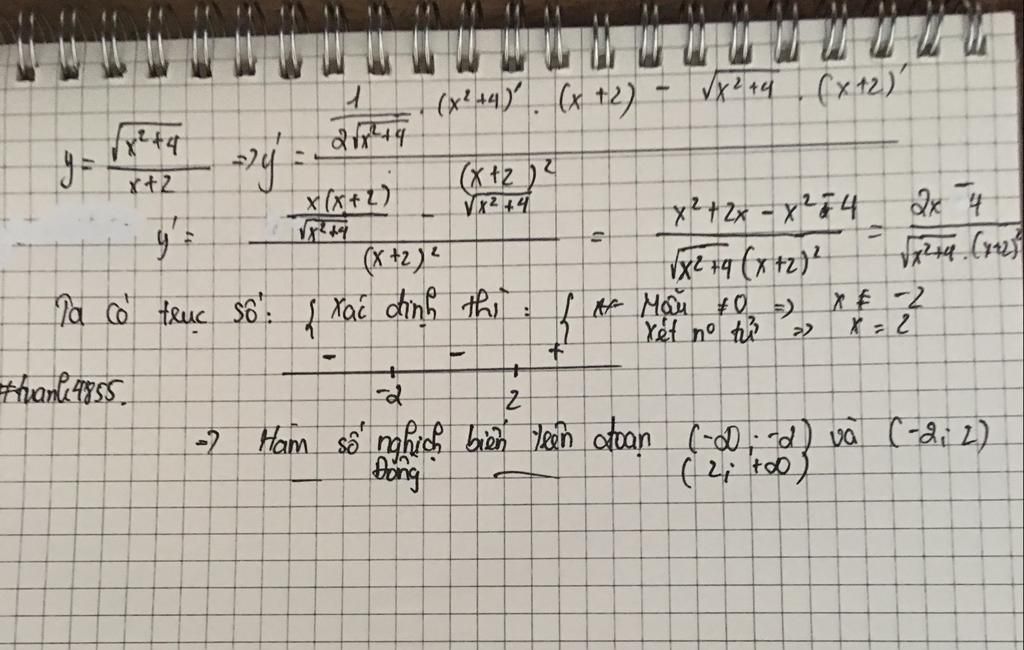 y = √(x²+4) / (x+2) => y' = ( 1/(2√(x²+4)) . (x²+4)' . (x+2) - √(x²+4) . (x+2)' ) / (x+2)²
y' = ( x(x+2)/√(x²+4) - √(x²+4) ) / (x+2)² = ( x²+2x-x²-4 ) / ( √(x²+4) (x+2)² ) = ( 2x-4 ) / ( √(x²+4) . (x+2)² )
Ta có trục số: { Xác định thì : { Mẫu ≠0 => x ≠ -2
Xét nº tử => x = 2
- - +
-2 2
#tuanh4855.
=> Hàm số nghịch biến trên đoạn (-∞; -2) và (-2; 2)
— Đồng — (2; +∞)